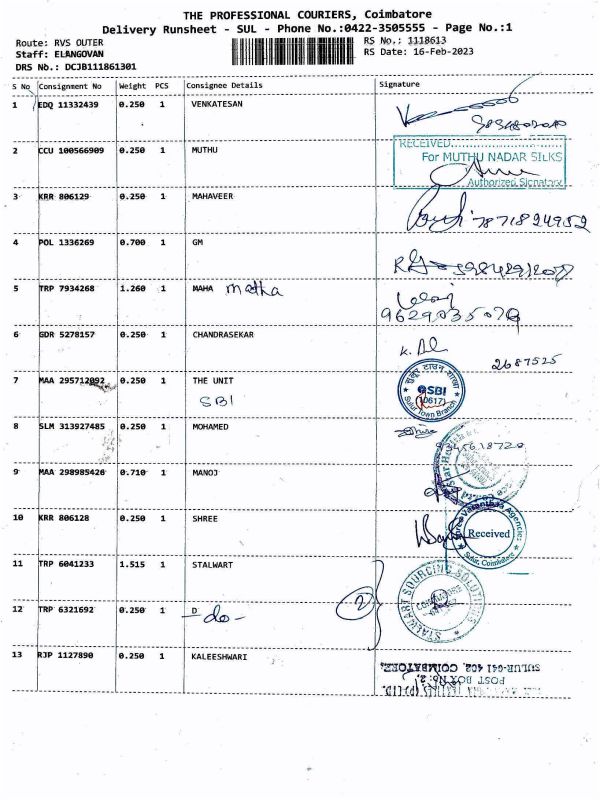 THE PROFESSIONAL COURIERS, Coimbatore
Delivery Runsheet - SUL - Phone No.:0422-3505555 - Page No.:1
Route: RVS OUTER
RS No.: 1118613
Staff: ELANGOVAN
RS Date: 16-Feb-2023
DRS Nb.: DCJB111861301
S No Consignment No Weight PCS Consignee Details Signature
1 EDQ 11332439 0.250 1 VENKATESAN
2 CCU 100566909 0.250 1 MUTHU
RECEIVED
For MUTHU NADAR SILKS
Authorized Signatory
3 KRR 806129 0.250 1 MAHAVEER
7871824952
4 POL 1336269 0.700 1 GM
5 TRP 7934268 1.260 1 MAHA matha
9629035070
6 GDR 5278157 0.250 1 CHANDRASEKAR
2687525
7 MAA 295712092 0.250 1 THE UNIT
SBI
सुलूर टाउन शाखा
SBI
(10617)
Sulur Town Branch
8 SLM 313927485 0.250 1 MOHAMED
9345618720
9 MAA 298985426 0.710 1 MANOJ
10 KRR 806128 0.250 1 SHREE
Agencies
Received
Sulur, Coimbatore
11 TRP 6041233 1.515 1 STALWART
STALWART SOURCING SOLUTIONS
12 TRP 6321692 0.250 1 D -do-
2
13 RJP 1127890 0.250 1 KALEESHWARI
SULUR-641 402, COIMBATORE.
POST BOX No: 2,